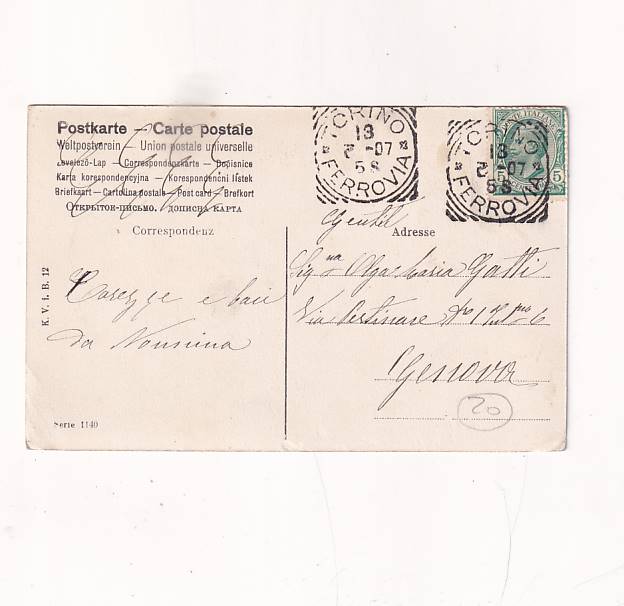 Postkarte — Carte postale
Weltpostverein — Union postale universelle
Levelező-Lap — Correspondenzkarte — Dopisnice
Karta korespondencyjna — Korespondenčni listek
Briefkart — Cartolina postale — Post card — Brefkort
Открытое-письмо. дописна карта
Correspondenz
Adresse
TORINO
FERROVIA
13
2 - 07
5 S
TORINO
FERROVIA
13
2 - 07
5 S
POSTE ITALIANE
5
5
Carezze e baci
da Nonnina
Gentil
Sig.na Olga Maria Gatti
Via
6
Genova
20
K. V. i. B. 12
Serie 1140